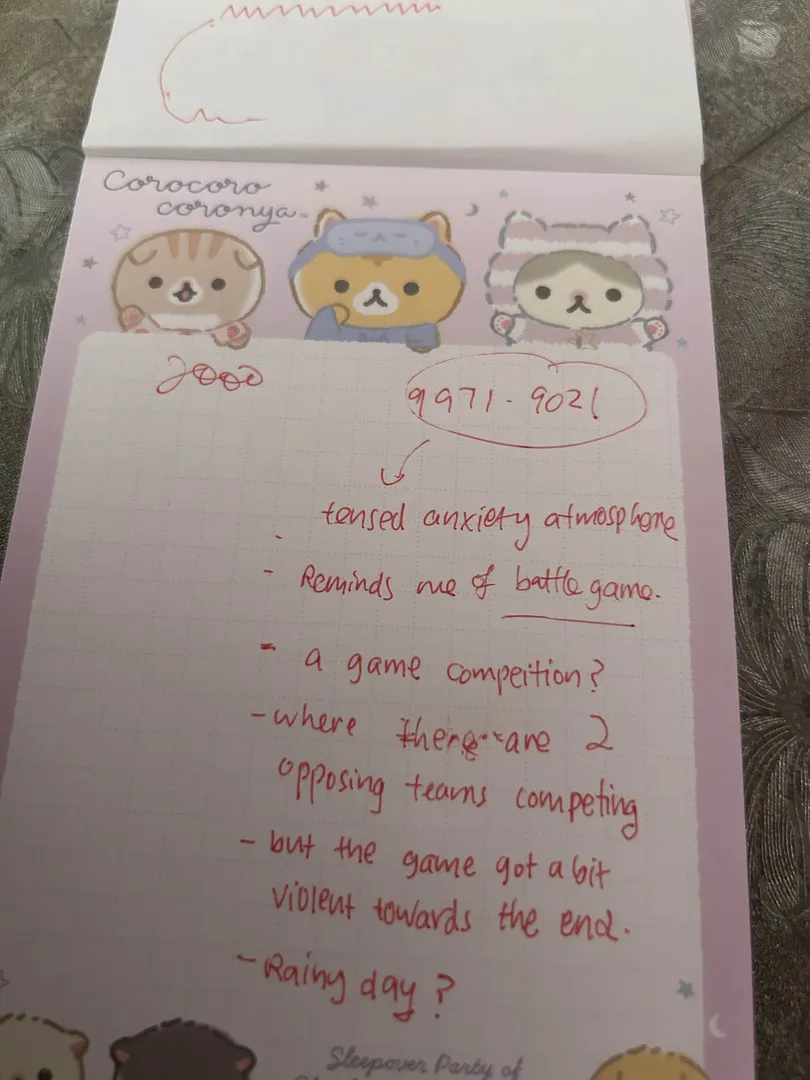 Corocoro
coronya
2000
9971 - 9021
tensed anxiety atmosphere
- Reminds me of battle game.
- a game compeition?
- where there are 2
opposing teams competing
- but the game got a bit
violent towards the end.
- Rainy day?
Sleepover Party of